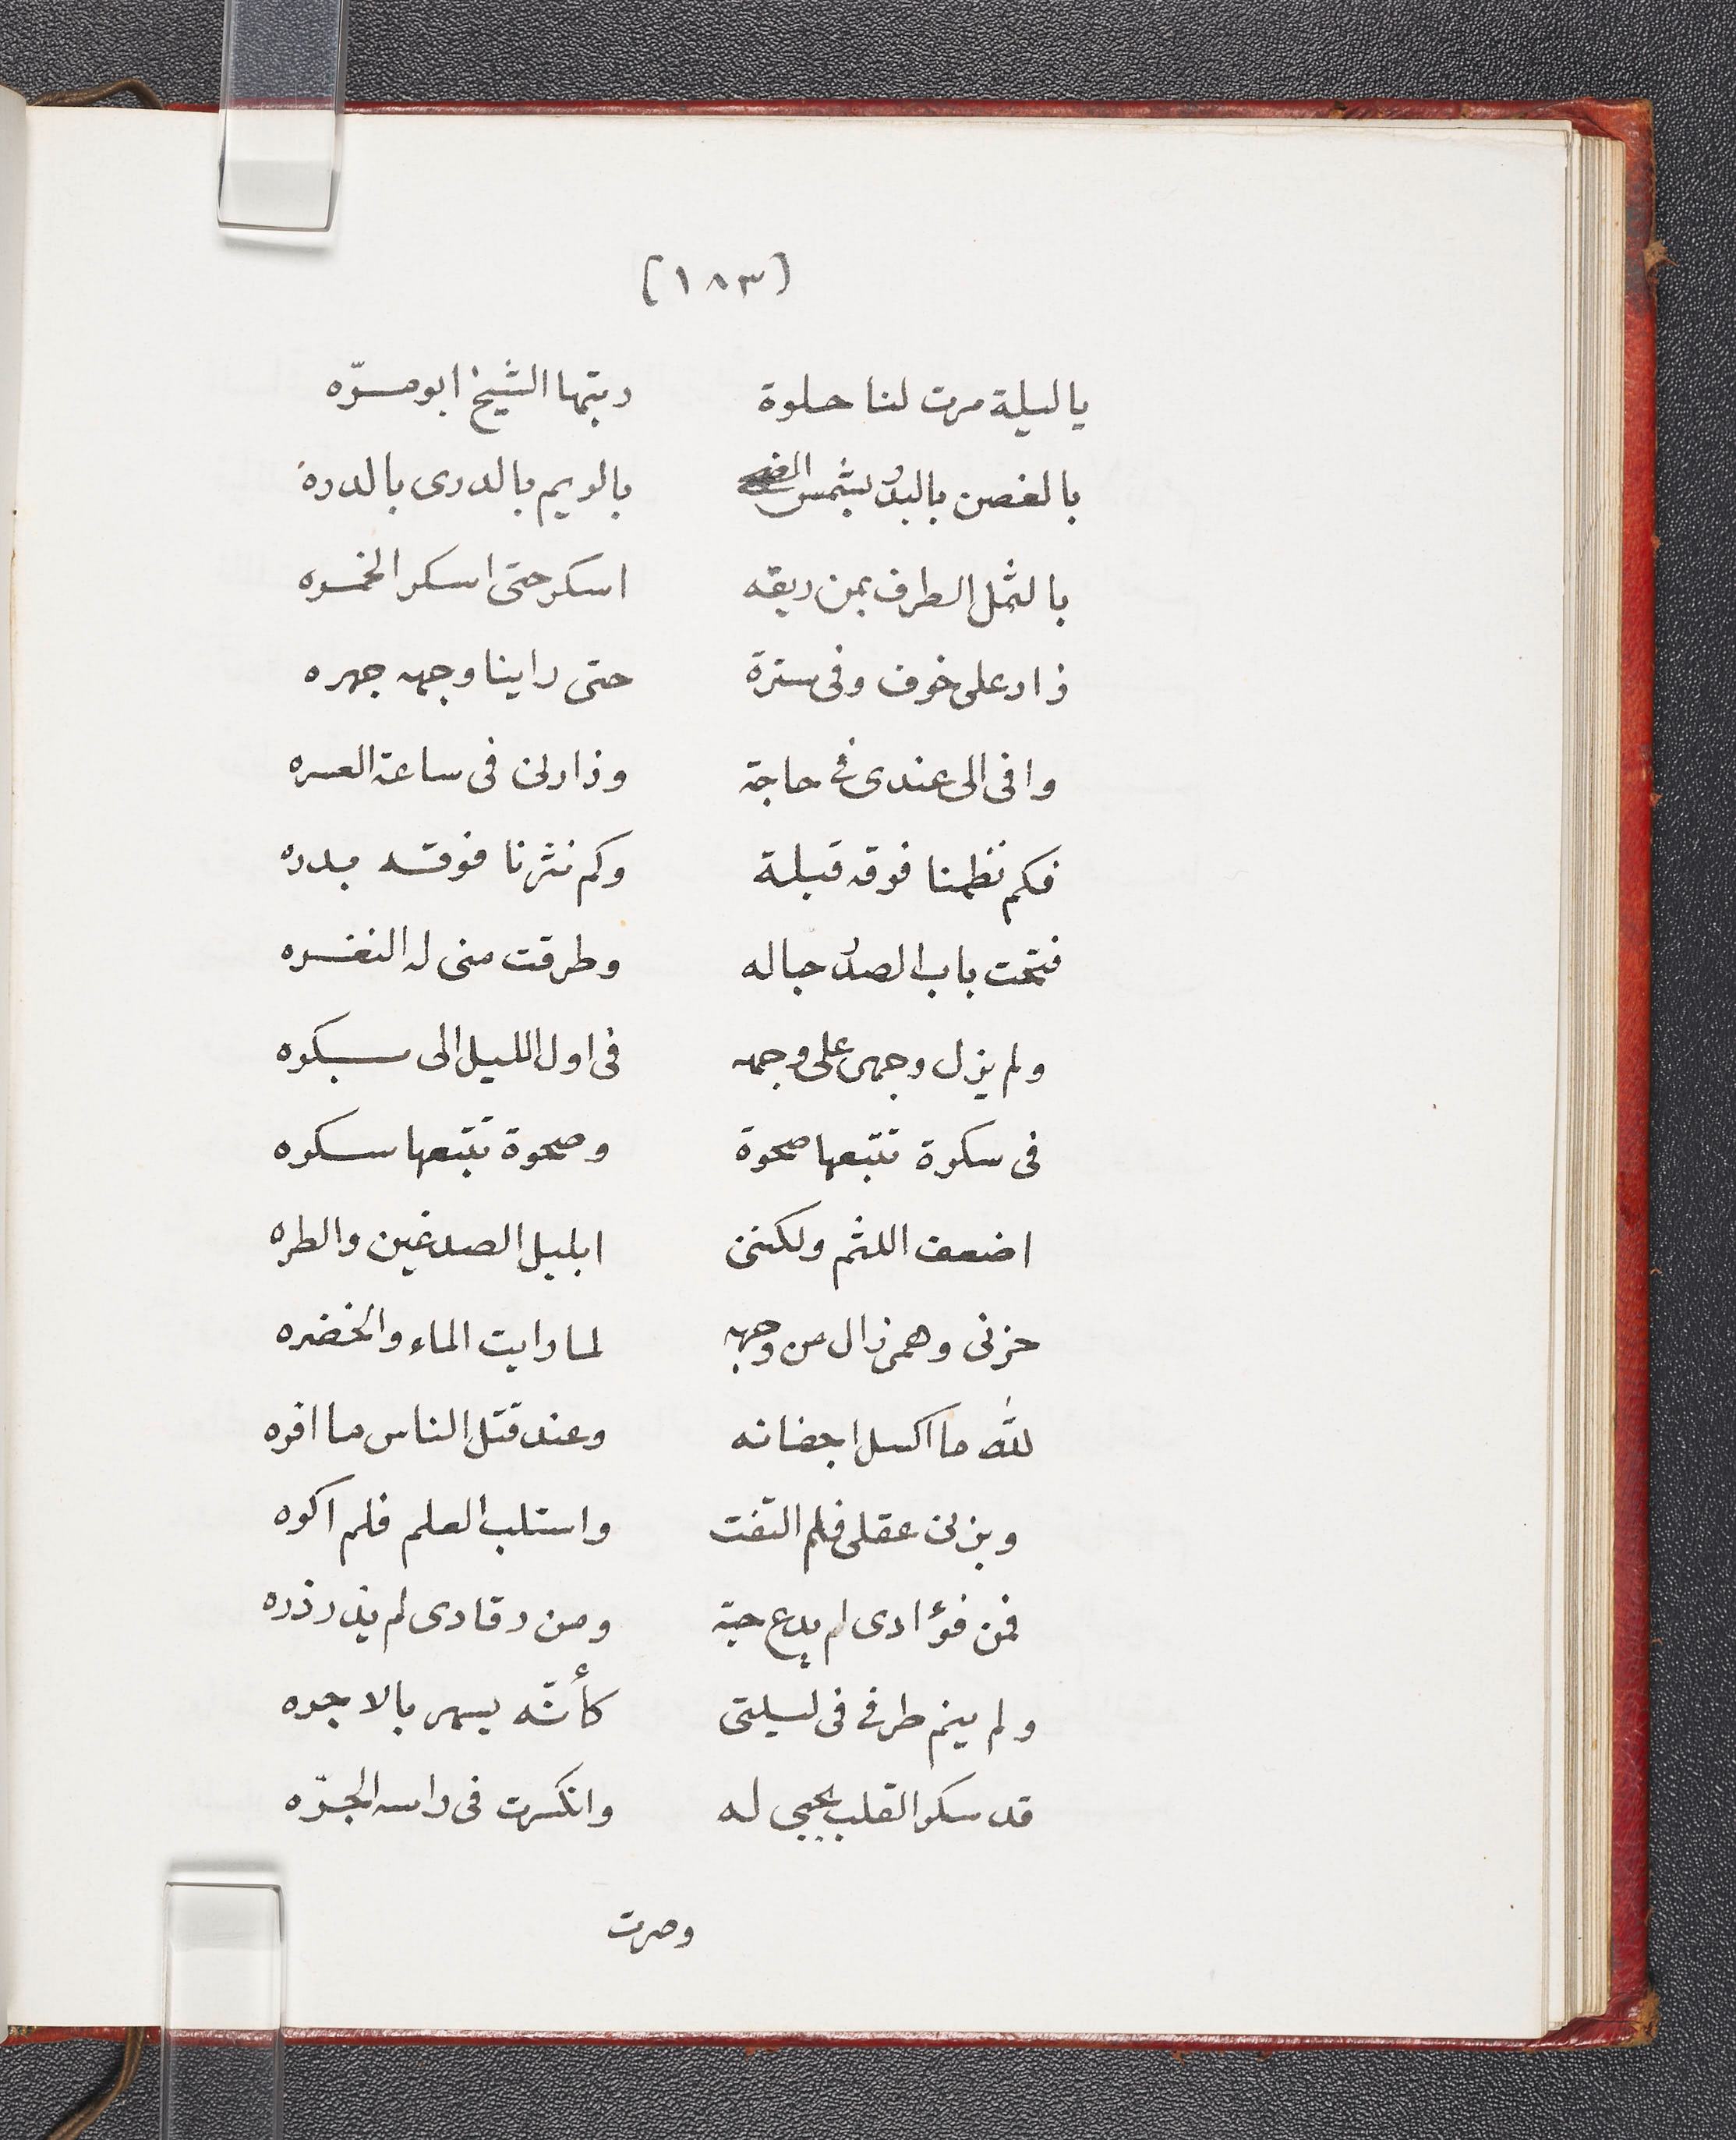 (١٨٣)
يا ليلة مرت لنا حلوة دبتها الشيخ ابو مرّه
بالغصن بالبدر بشمس الضحى بالريم بالدرى بالدره
بالثمل الطرف بمن ريقه اسكر حتى اسكر الخمره
زار على خوف وفى سترة حتى راينا وجهه جهره
وافى الى عندى فى حاجة وزارنى فى ساعة العسره
فكم نظمنا فوقه قبلة وكم نثرنا فوقه بدره
فتحت باب الصدر حباله وطرقت منى له النغره
ولم يزل وجهى على وجهه فى اول الليل الى بكره
فى سكرة تتبعها صحوة وصحوة تتبعها سكره
اضعف اللثم ولكننى ابليل الصدغين والطره
حزنى وهمى زال من وجهه لما رايت الماء والخضره
لله ما اكسل اجفانه وعند قتل الناس ما افره
وبزنى عقلى فلم التفت واستلب العلم فلم اكره
فمن فؤادى لم يدع حبة ومن رقادى لم يذر ذره
ولم ينم طرفى فى ليلتى كأنّه يسهر بالاجره
قد سكر القلب بحبى له وانكسرت فى راسه الجرّه
وصرت